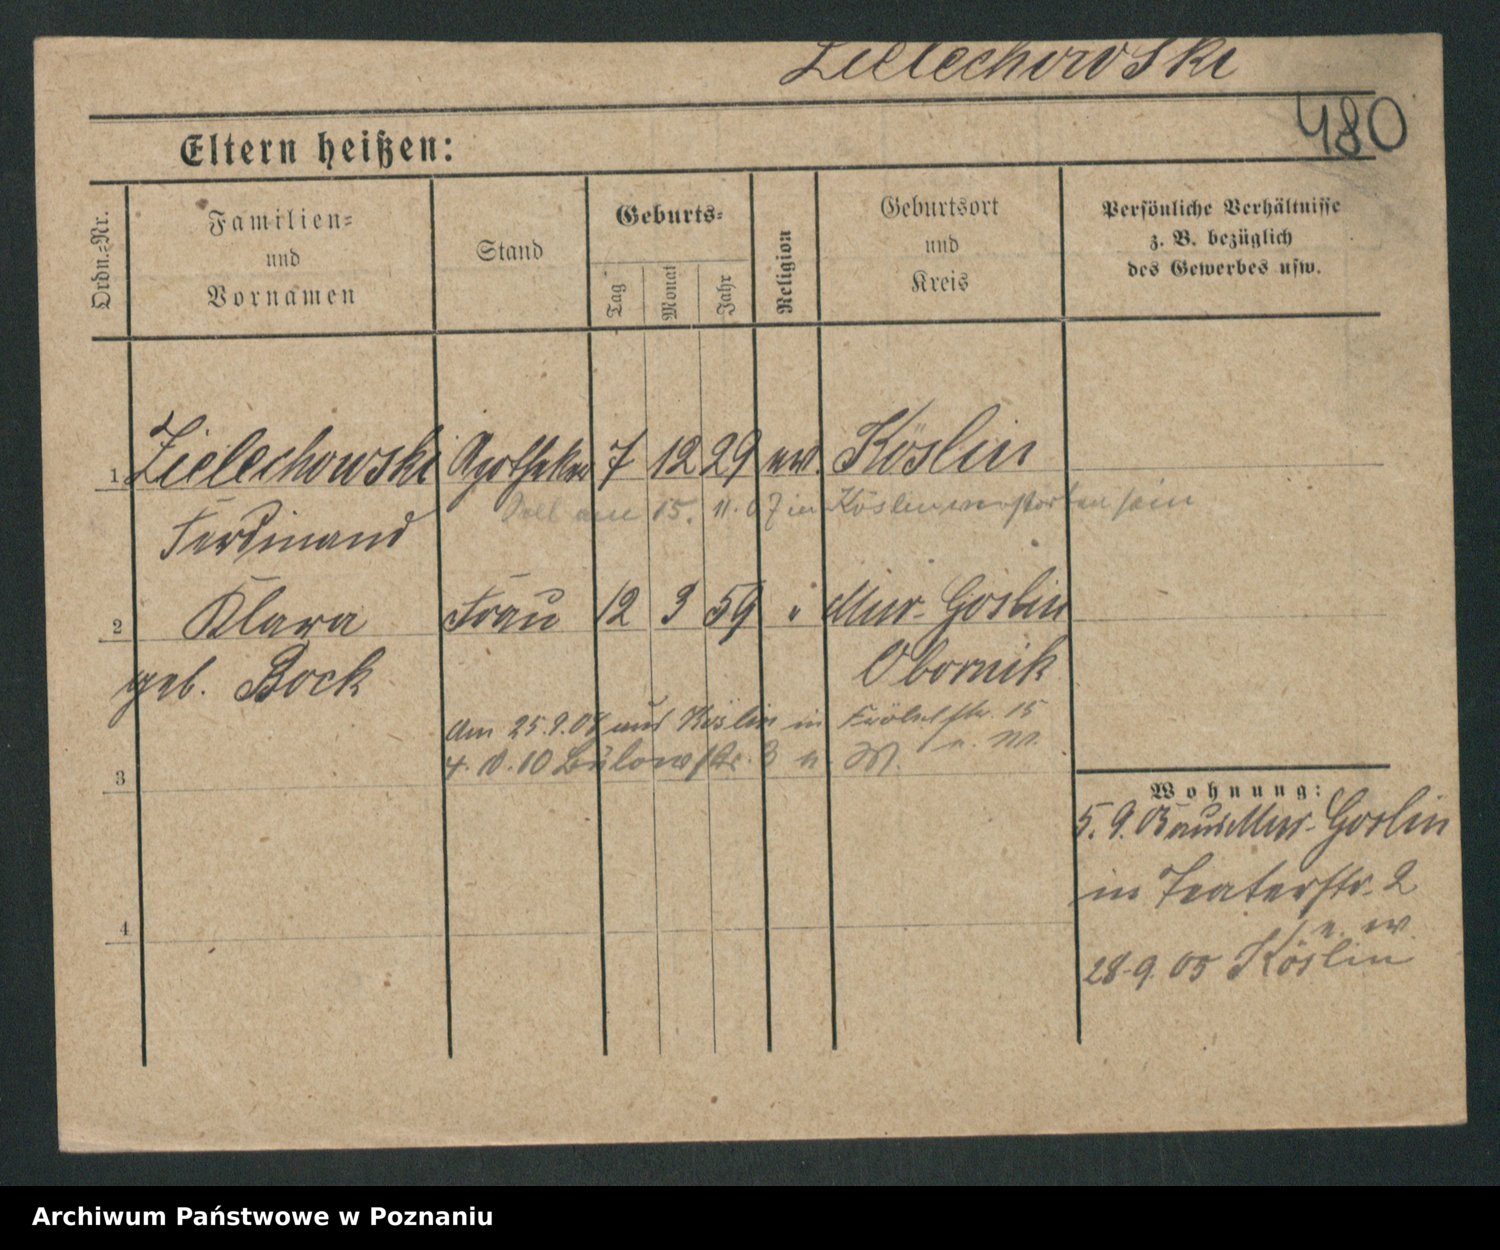 Zielechowski
480
Eltern heißen:
Ordn.-Nr.
Familien-
und
Vornamen
Stand
Geburts-
Tag
Monat
Jahr
Religion
Geburtsort
und
Kreis
Persönliche Verhältnisse
z. B. bezüglich
des Gewerbes usw.
1 Zielechowski Apotheker 7 12 29 ev. Köslin
Soll am 15. 11. 07 in Köslin verstorben sein
Ferdinand
2 Klara Frau 12 3 59 " Mur. Goslin
geb. Bock Obornik
Am 25.9.08 aus Köslin in Fröbelstr. 15
4. 10 Bülowstr. 3 u. W.
3
Wohnung:
5. 9. 05 aus Mur. Goslin
in Teaterstr. 2
28.9.05 Köslin
4
Archiwum Państwowe w Poznaniu